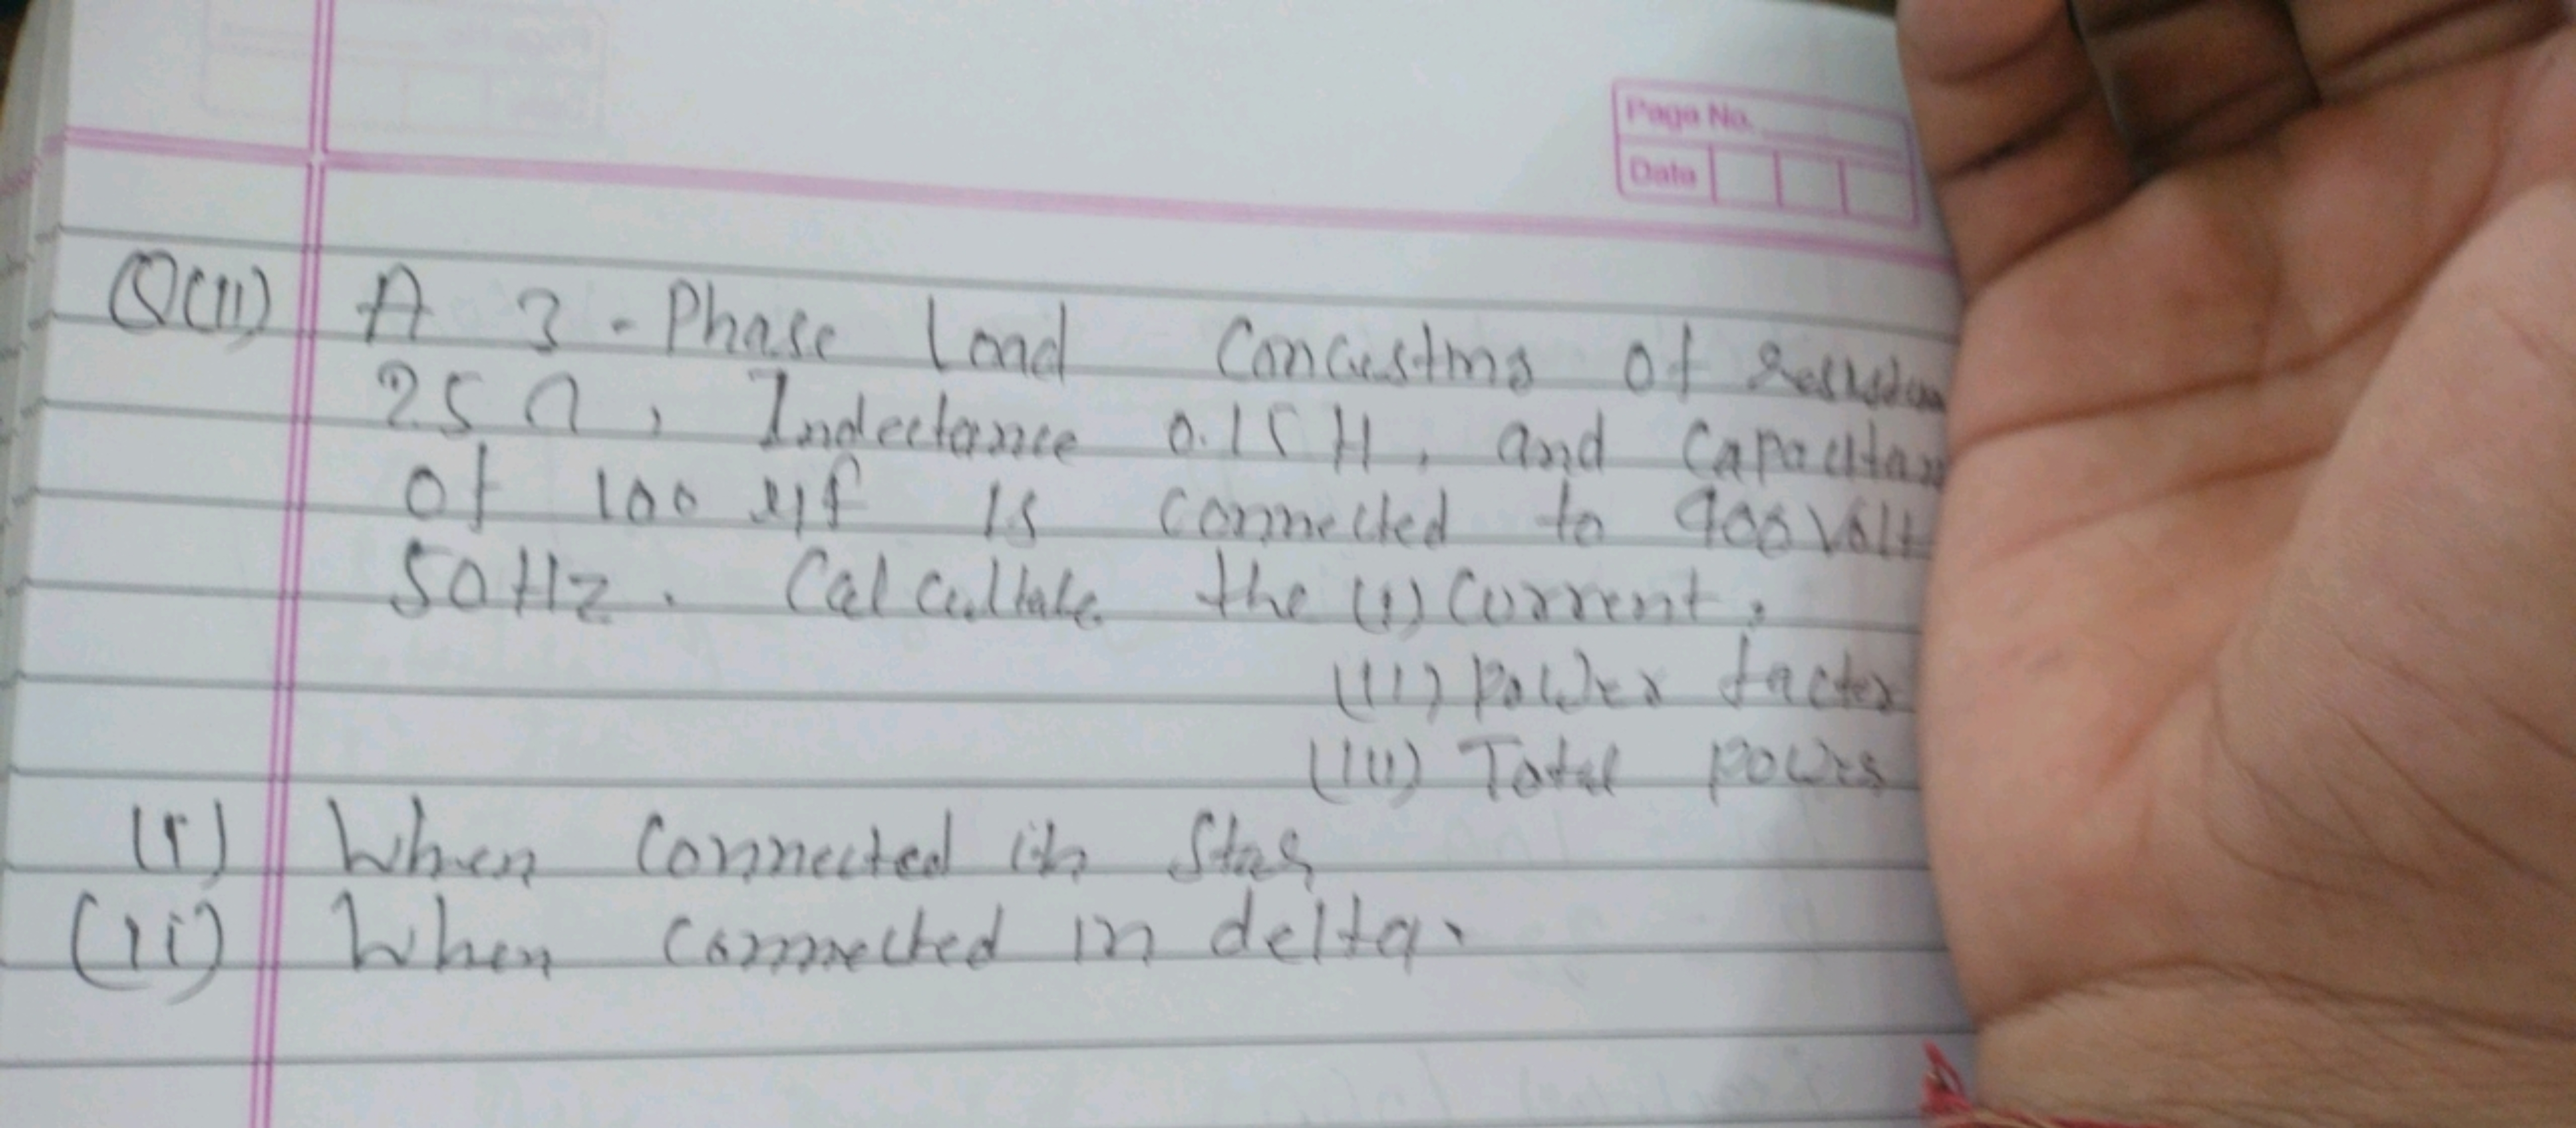 Page No.
Date
Q(11) A 3 - Phase load
25 Ω, Indectance 0.15 H, and
of 100 μf is connected to 400 Volt
50 Hz. Calcultate the (i) Current,
(ii) Power factor
(iii) Total power
(i) When connected in Star
(ii) When connected in delta.